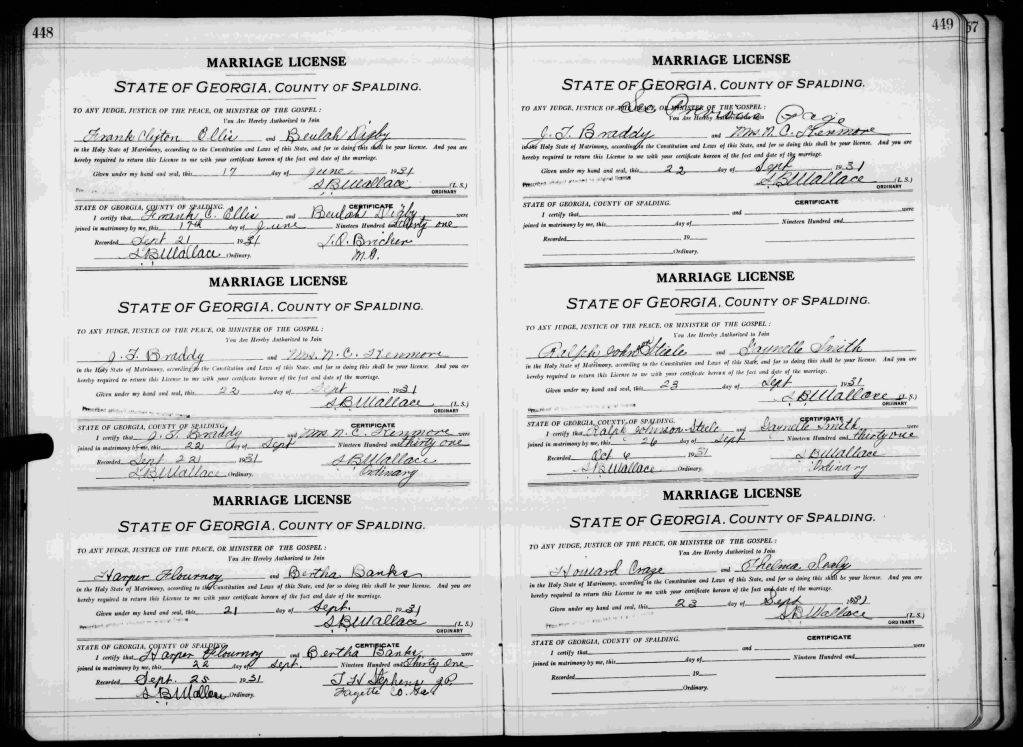 448
MARRIAGE LICENSE
STATE OF GEORGIA, COUNTY OF SPALDING.
TO ANY JUDGE, JUSTICE OF THE PEACE, OR MINISTER OF THE GOSPEL:
You Are Hereby Authorized to Join
Frank Clifton Ellis and Beulah Digby
in the Holy State of Matrimony, according to the Constitution and Laws of this State, and for so doing this shall be your license. And you are
hereby required to return this License to me with your certificate hereon of the fact and date of the marriage.
Given under my hand and seal, this 17 day of June 1931
S.B. Wallace (L. S.)
ORDINARY
STATE OF GEORGIA, COUNTY OF SPALDING. CERTIFICATE
I certify that Frank C. Ellis and Beulah Digby were
joined in matrimony by me, this 17th day of June Nineteen Hundred and thirty one
Recorded Sept 21 1931
S.B. Wallace Ordinary. M.G.
MARRIAGE LICENSE
STATE OF GEORGIA, COUNTY OF SPALDING.
TO ANY JUDGE, JUSTICE OF THE PEACE, OR MINISTER OF THE GOSPEL:
You Are Hereby Authorized to Join
J. T. Braddy and Mrs. N. C. Kenmore
in the Holy State of Matrimony, according to the Constitution and Laws of this State, and for so doing this shall be your license. And you are
hereby required to return this License to me with your certificate hereon of the fact and date of the marriage.
Given under my hand and seal, this 22 day of Sept 1931
S.B. Wallace (L. S.)
ORDINARY
STATE OF GEORGIA, COUNTY OF SPALDING. CERTIFICATE
I certify that J. T. Braddy and Mrs N. C. Kenmore were
joined in matrimony by me, this 22 day of Sept Nineteen Hundred and thirty one
Recorded Sept 22 1931 S.B. Wallace
S.B. Wallace Ordinary. Ordinary
MARRIAGE LICENSE
STATE OF GEORGIA, COUNTY OF SPALDING.
TO ANY JUDGE, JUSTICE OF THE PEACE, OR MINISTER OF THE GOSPEL:
You Are Hereby Authorized to Join
Harper Flournoy and Bertha Banks
in the Holy State of Matrimony, according to the Constitution and Laws of this State, and for so doing this shall be your license. And you are
hereby required to return this License to me with your certificate hereon of the fact and date of the marriage.
Given under my hand and seal, this 21 day of Sept. 1931
S.B. Wallace (L. S.)
ORDINARY
STATE OF GEORGIA, COUNTY OF SPALDING. CERTIFICATE
I certify that Harper Flournoy and Bertha Banks were
joined in matrimony by me, this 22 day of Sept. Nineteen Hundred and Thirty One
Recorded Sept. 25 1931 T H Stephens J.P.
S.B. Wallace Ordinary. Fayette Co. Ga.
449
57
MARRIAGE LICENSE
STATE OF GEORGIA, COUNTY OF SPALDING.
TO ANY JUDGE, JUSTICE OF THE PEACE, OR MINISTER OF THE GOSPEL:
You Are Hereby Authorized to Join
Page
J. T. Braddy and Mrs. N. C. Kenmore
in the Holy State of Matrimony, according to the Constitution and Laws of this State, and for so doing this shall be your license. And you are
hereby required to return this License to me with your certificate hereon of the fact and date of the marriage.
Given under my hand and seal, this 22 day of Sept 1931
S.B. Wallace (L. S.)
ORDINARY
STATE OF GEORGIA, COUNTY OF SPALDING. CERTIFICATE
I certify that and were
joined in matrimony by me, this day of Nineteen Hundred and
Recorded 19
Ordinary.
MARRIAGE LICENSE
STATE OF GEORGIA, COUNTY OF SPALDING.
TO ANY JUDGE, JUSTICE OF THE PEACE, OR MINISTER OF THE GOSPEL:
You Are Hereby Authorized to Join
Ralph John Steele and Jaynelle Smith
in the Holy State of Matrimony, according to the Constitution and Laws of this State, and for so doing this shall be your license. And you are
hereby required to return this License to me with your certificate hereon of the fact and date of the marriage.
Given under my hand and seal, this 23 day of Sept 1931
S.B. Wallace (L. S.)
ORDINARY
STATE OF GEORGIA, COUNTY OF SPALDING. CERTIFICATE
I certify that Ralph Johnson Steele and Jaynelle Smith were
joined in matrimony by me, this 26 day of Sept Nineteen Hundred and thirty one
Recorded Oct 6 1931 S.B. Wallace
S.B. Wallace Ordinary. Ordinary
MARRIAGE LICENSE
STATE OF GEORGIA, COUNTY OF SPALDING.
TO ANY JUDGE, JUSTICE OF THE PEACE, OR MINISTER OF THE GOSPEL:
You Are Hereby Authorized to Join
Howard Craze and Thelma Sealy
in the Holy State of Matrimony, according to the Constitution and Laws of this State, and for so doing this shall be your license. And you are
hereby required to return this License to me with your certificate hereon of the fact and date of the marriage.
Given under my hand and seal, this 23 day of Sept 1931
S.B. Wallace (L. S.)
ORDINARY
STATE OF GEORGIA, COUNTY OF SPALDING. CERTIFICATE
I certify that and were
joined in matrimony by me, this day of Nineteen Hundred and
Recorded 19
Ordinary.